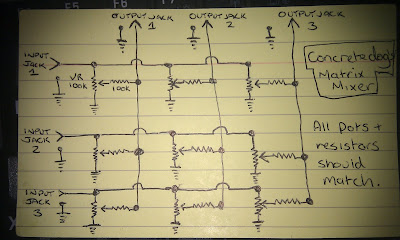 OUTPUT JACK 1
OUTPUT JACK 2
OUTPUT JACK 3
INPUT
JACK
1
VR
100K
100K
Concretedog's
Matrix
Mixer
INPUT
JACK
2
All pots +
resistors
should
match.
INPUT
JACK
3